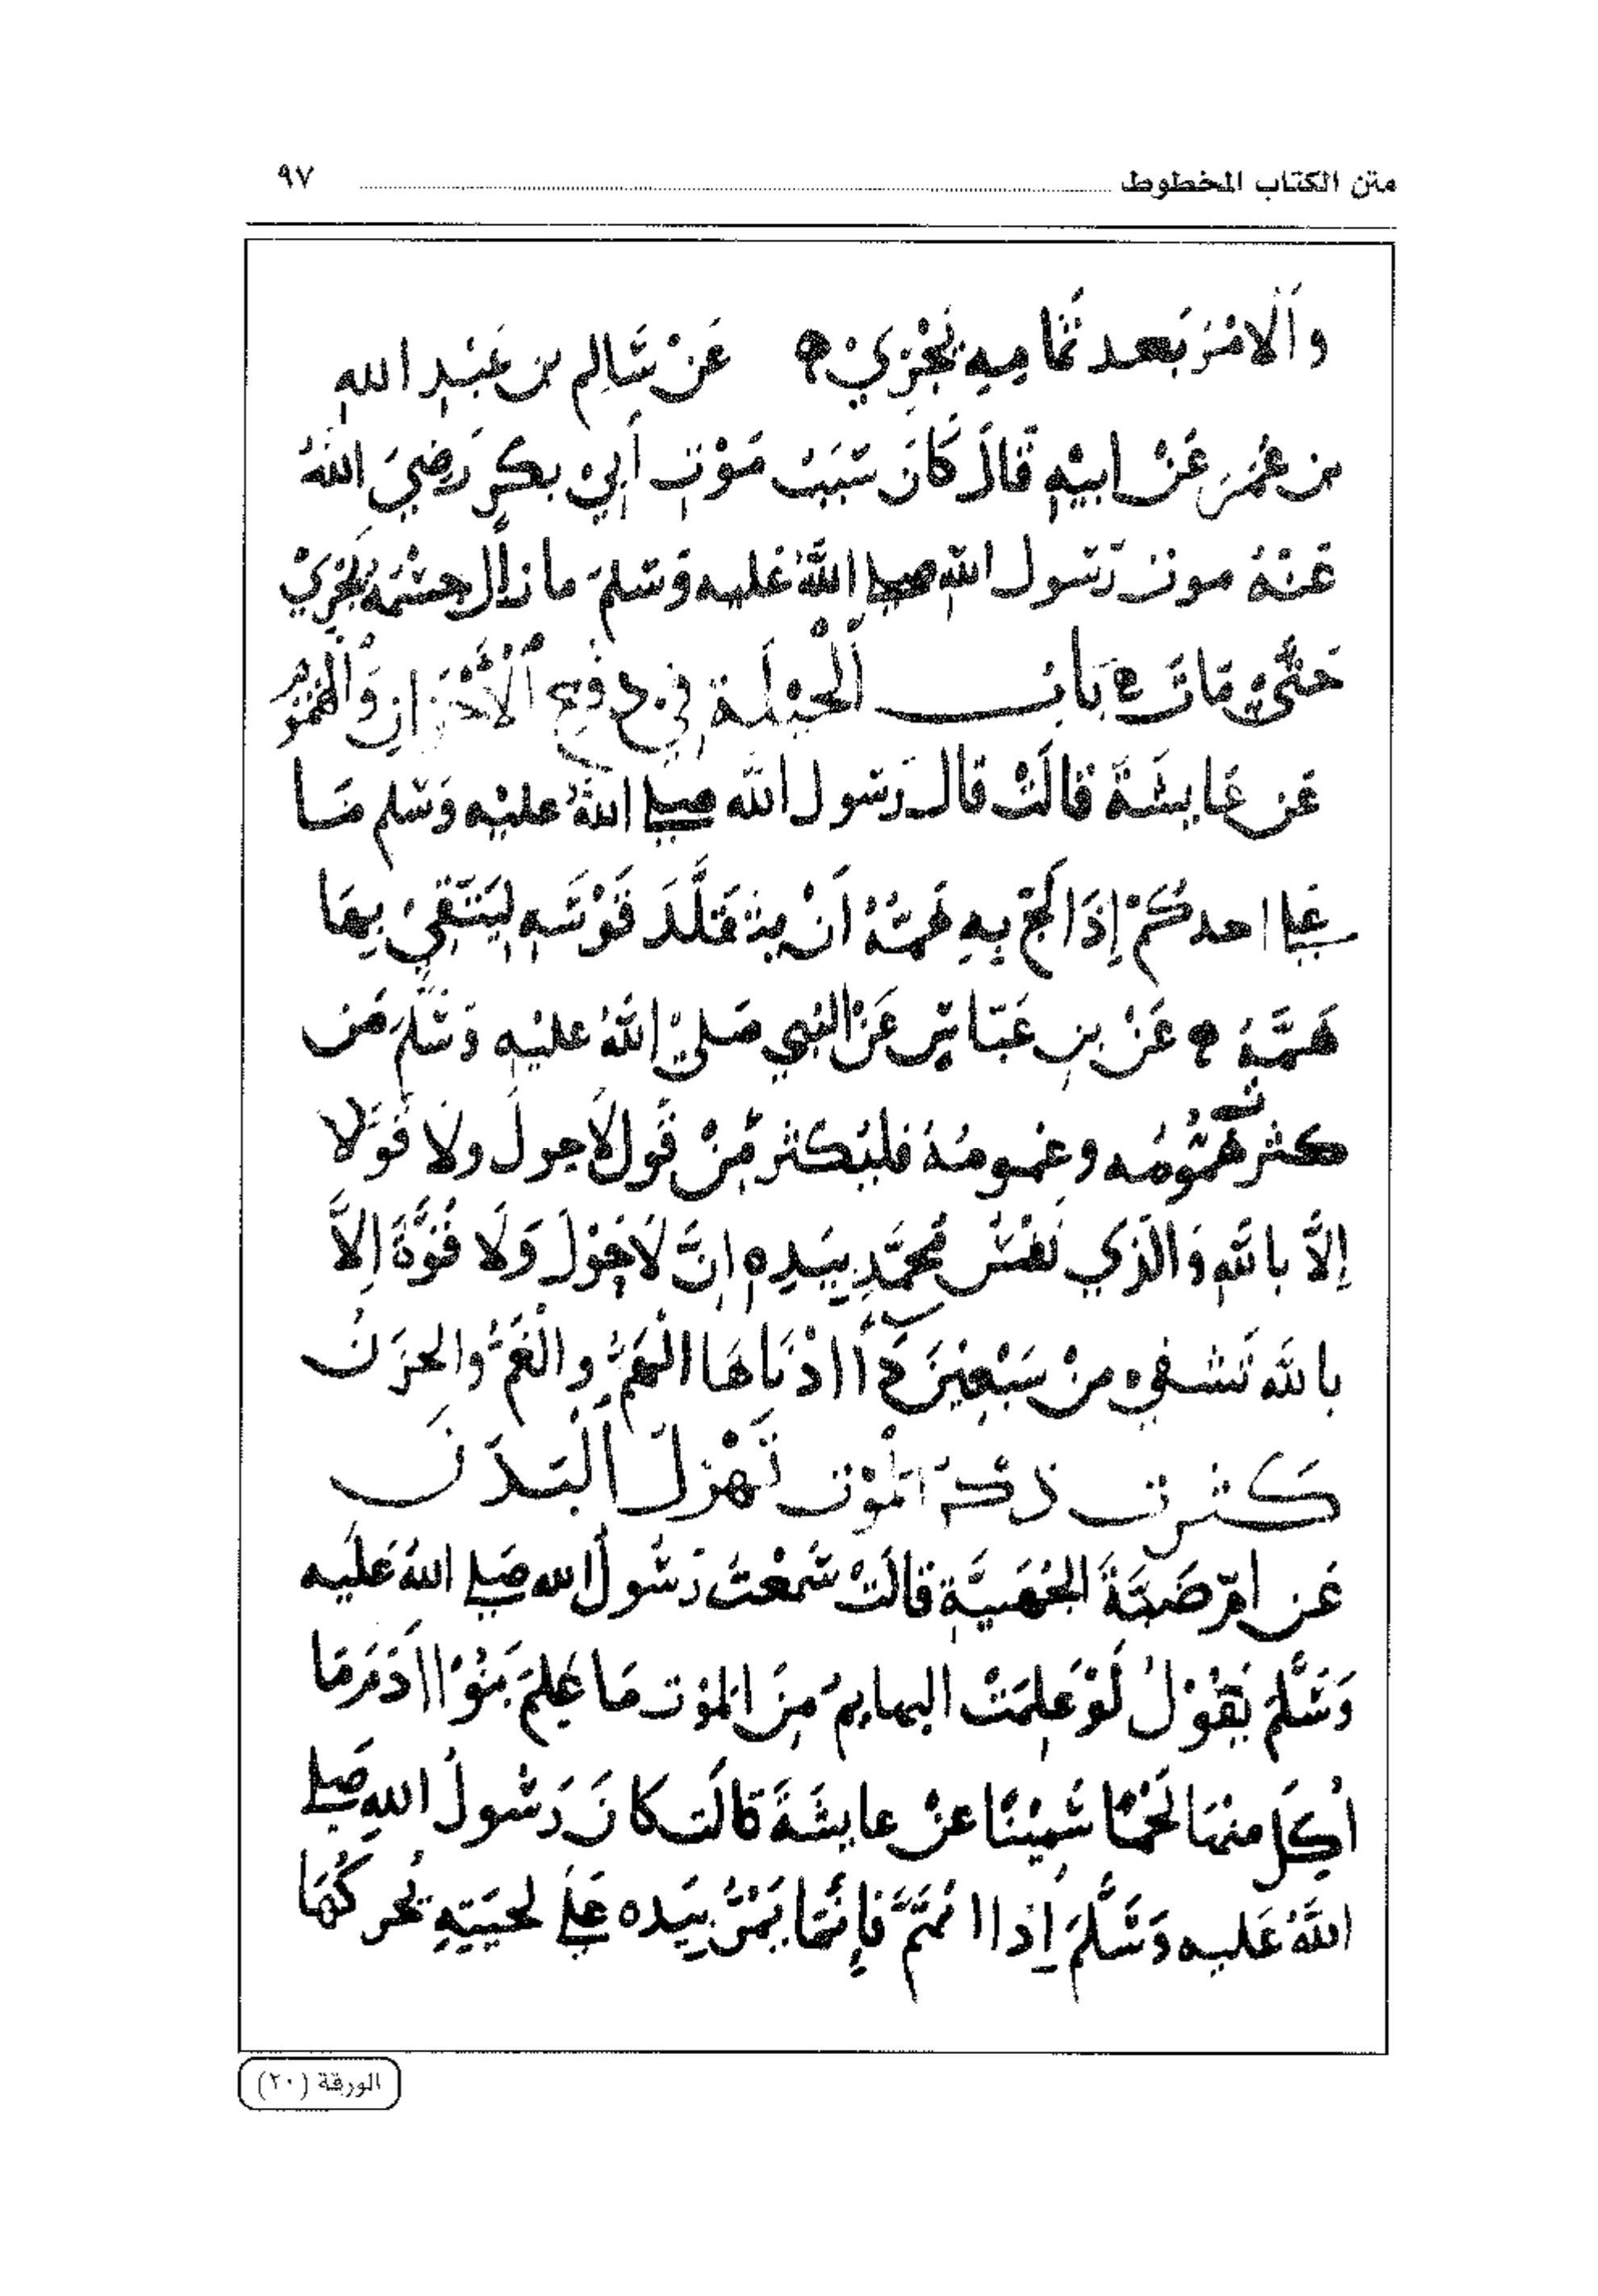 متن الكتاب المخطوط ٩٧
وَالامْرُ بَعد ثمَاميه تَجْرِي عَنْ سَالِم بن عَبْدِ اللهِ
بن عُمَر عَنْ ابيْهِ قَالَ كَانَ سَبَبُ مَوْتِ أَبِيْ بكرٍ رَضِيَ اللهُ
عَنْهُ موت رَسول الله صلى اللهُ عَليه وَسَلمَ ما زال جسْمهُ يَجْرِيْ
حَتَّىْ مَاتَ بَابُ الْحِيْلَة فِي دفع الْأَحْزَانِ وَالْهُمُوْمِ
عَن عَايشَةَ قَالَتْ قال رَسول الله صلى اللهُ عليْه وَسَلم مَا
على احدكُمْ إِذَا لَجَّ بِهِ هَمُّهُ أَنْ يتقَلَّدَ قَوْسَهِ لِيَتَّقِيْ بِهَا
هَمَّهُ عَنْ بن عَبَّاسٍ عَنْ النبي صَلىْ اللهُ عليْهِ وَسَلَّمَ مَن
كثر هُمُوْمُه وغمومُهُ فليُكثر مِنْ قَول لَا حول ولَا قُوَّلا
إِلاَّ باللهِ وَالَّذي نَفْسُ مُحَمَّدٍ بِيَدِهِ إِنَّ لَا حَوْلَ وَلَا قُوَّةَ إِلاَّ
باللَّه تَشفي منْ سَبْعِيْنَ دَاً ادْنَاهَا الْهَمُّ والْغَمُّ والحزَنُ
كَثرت ذكْرَ المَوْت تَهْزلَ الْبَدَنَ
عَن امّ صَبيَّةَ الجُهَنيَّةِ قَالَتْ سَمعْتُ رَسُولَ الله صَلى اللهُ عَلَيه
وَسَلَّمَ يَقُوْلُ لَوْ عَلِمَتْ البهايمُ مِنَ المَوْت مَا عَلِمَ بَنُوْا أَدَمَ مَا
أُكِلَ منْهَا لَحْمًا سَمِيْنًا عَنْ عايشَةَ قَالَت كَانَ رَسُولُ اللهِ صَلى
اللَّهُ عَليه وَسَلَّمَ إِذا اهْتَمَّ فَإِنَّمَا يَمُرُّ بِيَده عَلَى لحيَتِهِ يُحركُهَا
الورقة (٢٠)